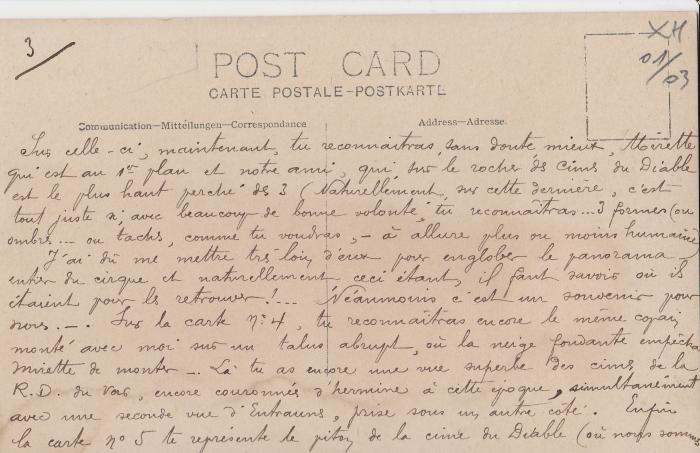 3
XH
01/03
POST CARD
CARTE POSTALE-POSTKARTE
Communication—Mitteilungen—Correspondance
Address—Adresse.
Sur celle-ci, maintenant, tu reconnaîtras, sans doute mieux, Miette
qui est au 1er plan et notre ami, qui, sur le rocher des Cimes du Diable
est le plus haut perché des 3 (Naturellement, sur cette dernière, c'est
tout juste si, avec beaucoup de bonne volonté, tu reconnaîtras... 3 formes (ou
ombres... ou taches, comme tu voudras, - à allure plus ou moins humaine)
J'ai dû me mettre très loin d'eux pour englober le panorama
entier du cirque et naturellement ceci étant, il faut savoir où ils
étaient pour les retrouver!... Néanmoins c'est un souvenir pour
nous. -. Sur la carte n° 4, tu reconnaîtras encore le même copain
monté avec moi sur un talus abrupt, où la neige fondante empêcha
Miette de monter -. Là tu as encore une vue superbe des cimes de la
R.D. du Var, encore couronnés d'hermine à cette époque, simultanément
avec une seconde vue d'Entrauns, prise sous un autre côté. Enfin
la carte n° 5 te représente le piton de la cime du Diable (où nous sommes